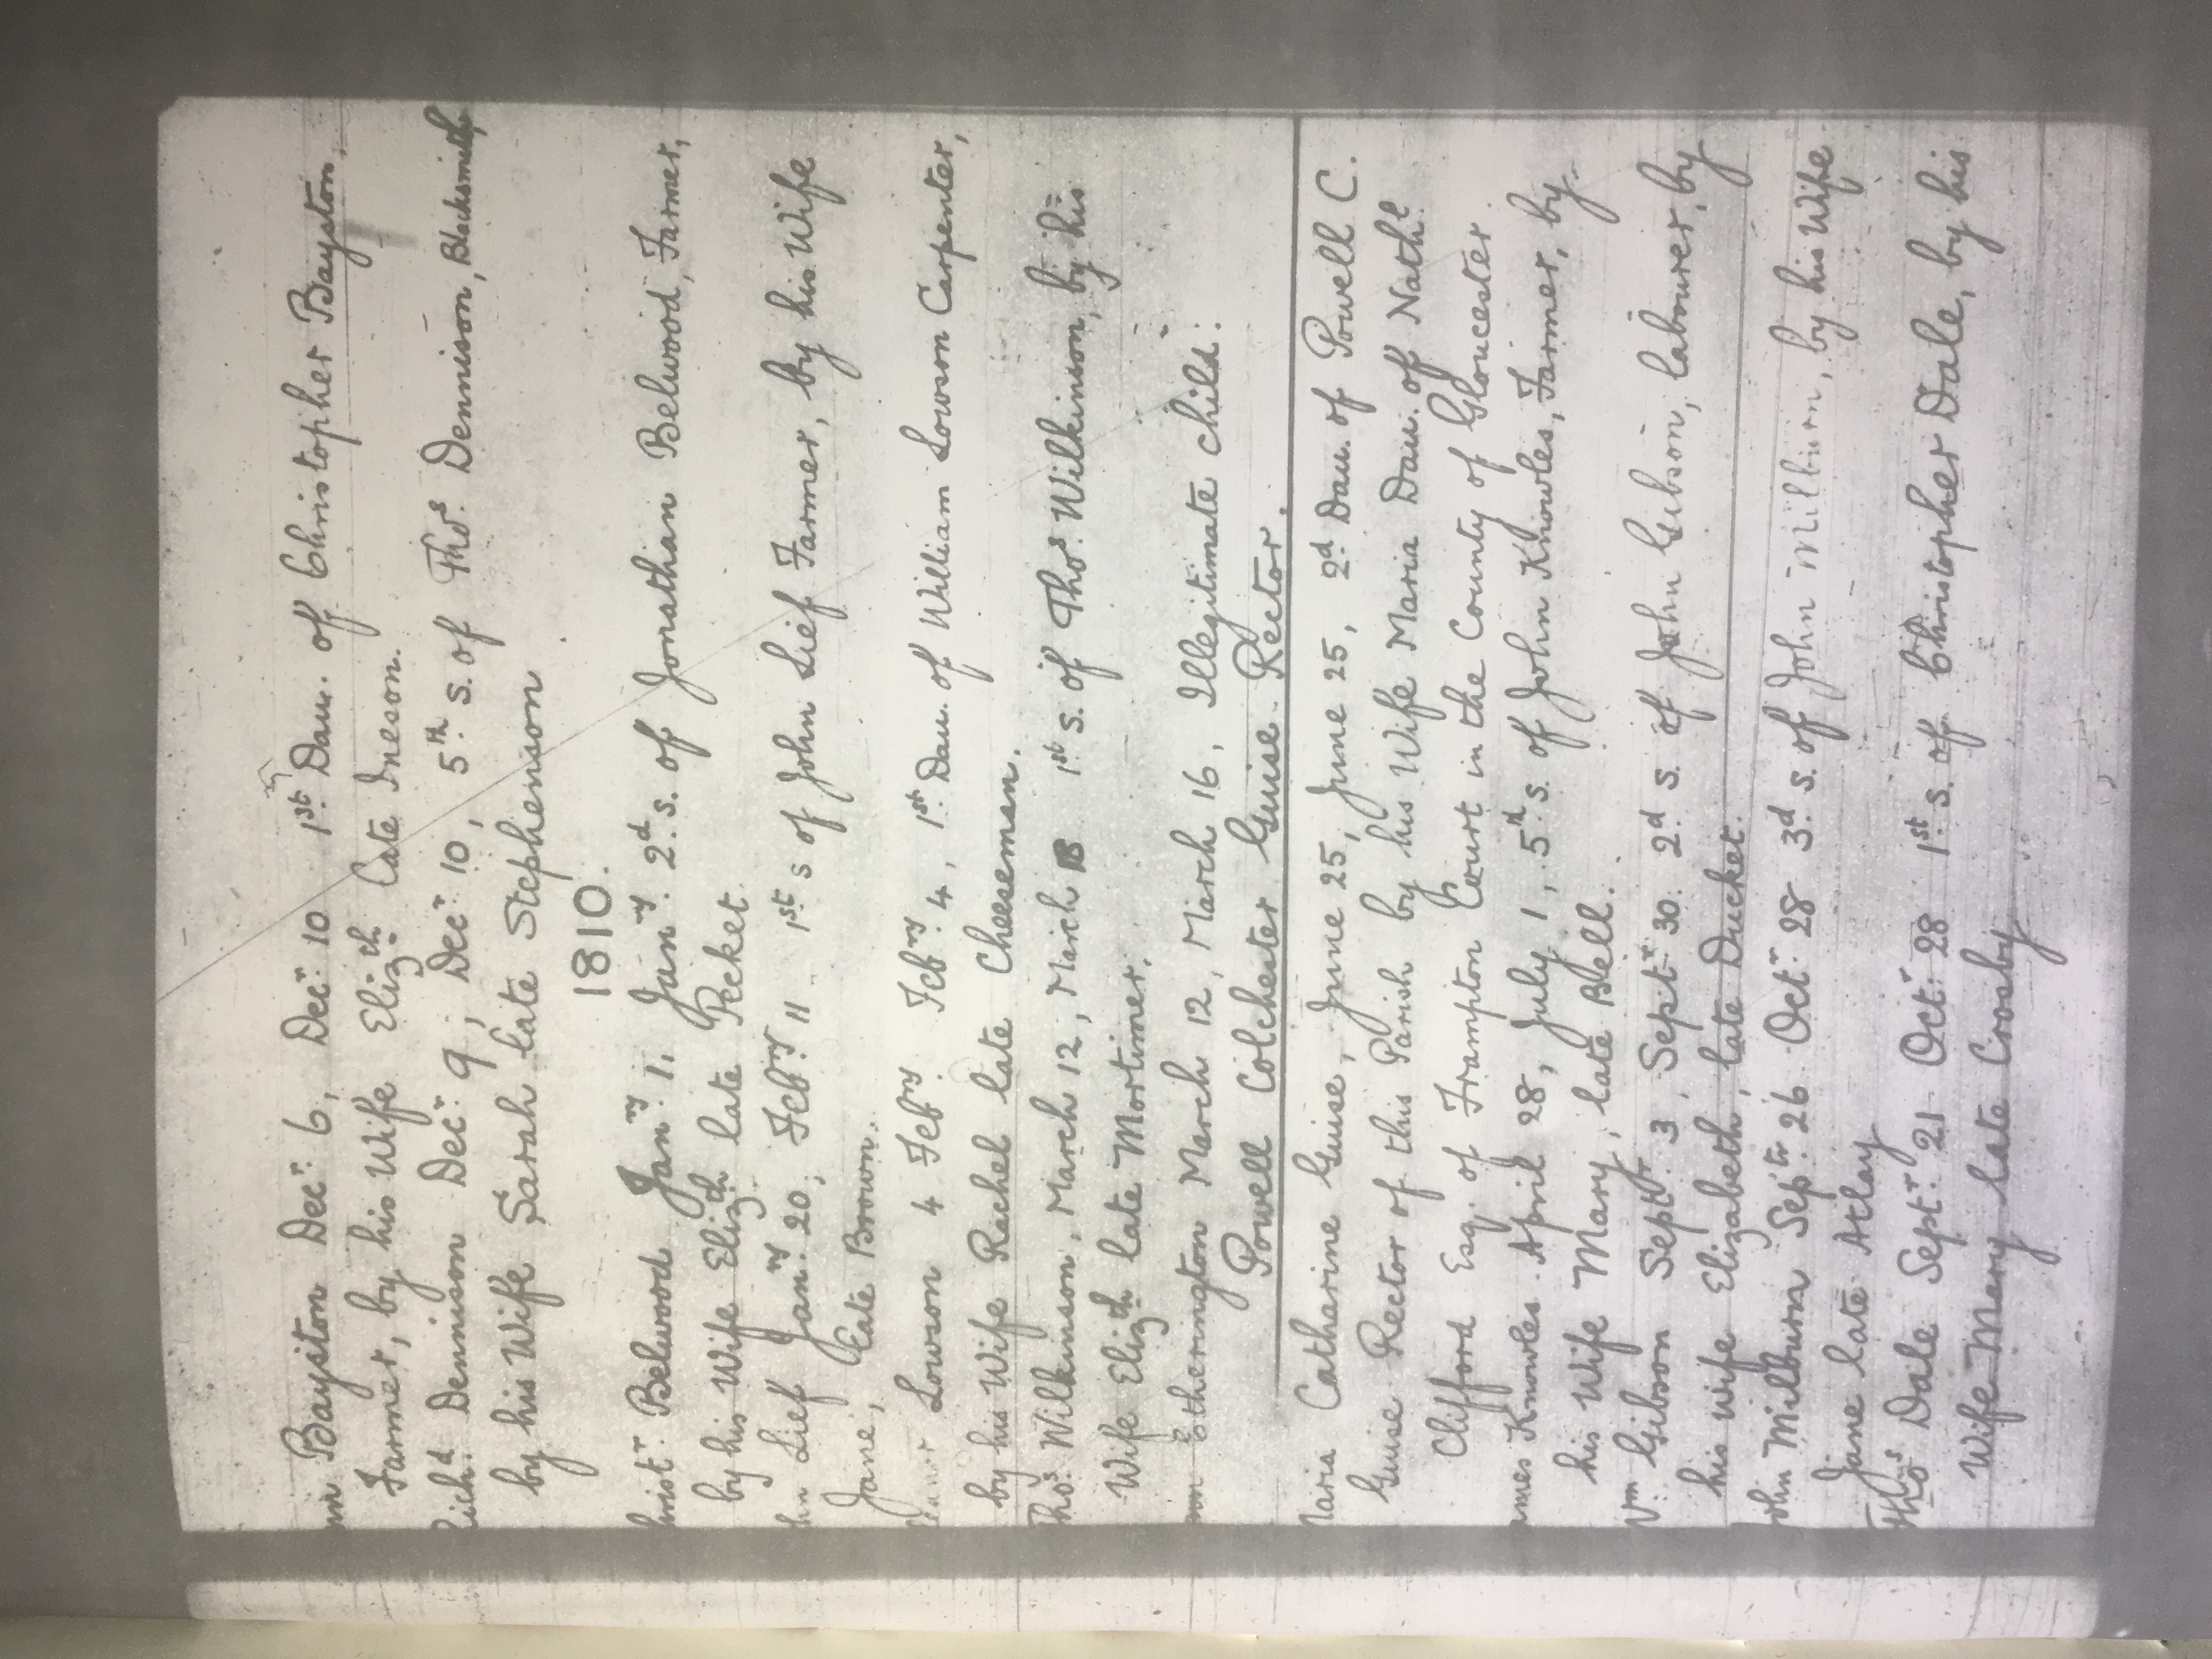 Bayston Decr. 6, Decr. 10 1st. Dau. of Christopher Bayston,
Farmer, by his Wife Elizth. Late Ineson.
Richd. Dennison Decr. 9, Decr. 10, 5th. s. of Thos. Dennison, Blacksmith
by his Wife Sarah late Stephenson
1810.
hrist. Belwood Jany. 1, Jany. 2d. s. of Jonathan Belwood, Farmer,
by his Wife Elizth. late Pecket.
hn Lief Jany. 20, Feby. 11 1st. s of John Lief Farmer, by his Wife
Jane, Late Brown.
Lowson 4 Febry. Febry. 4, 1st. Dau. of William Lowson Carpenter,
by his Wife Rachel late Cheeseman.
Thos. Wilkinson, March 12, March 1st s. of Thos. Wilkinson, by his
Wife Elizth. late Mortimer.
Etherington March 12, March 16, Illegitimate child.
Powell Colchester Guise Rector.
Maria Catharine Guise, June 25, June 25, 2d. Dau. of Powell C.
Guise Rector of this Parish by his Wife Maria Dau. of Nathl.
Clifford Esq. of Frampton Court in the County of Gloucester
ames Knowles April 28, July 1, 5th. s. of John Knowles, Farmer, by
his Wife Mary, late Bell.
Wm. Gibson Septr. 3, Septr. 30. 2d s. of John Gibson, labourer, by
his wife Elizabeth, late Ducket.
John Milburn Septr. 26 Octr. 28 3d s. of John Milburn, by his Wife
Jane late Atlay
Thos Dale Septr. 21 Octr. 28 1st. s. of Christopher Dale, by his
Wife Mary late Crosby